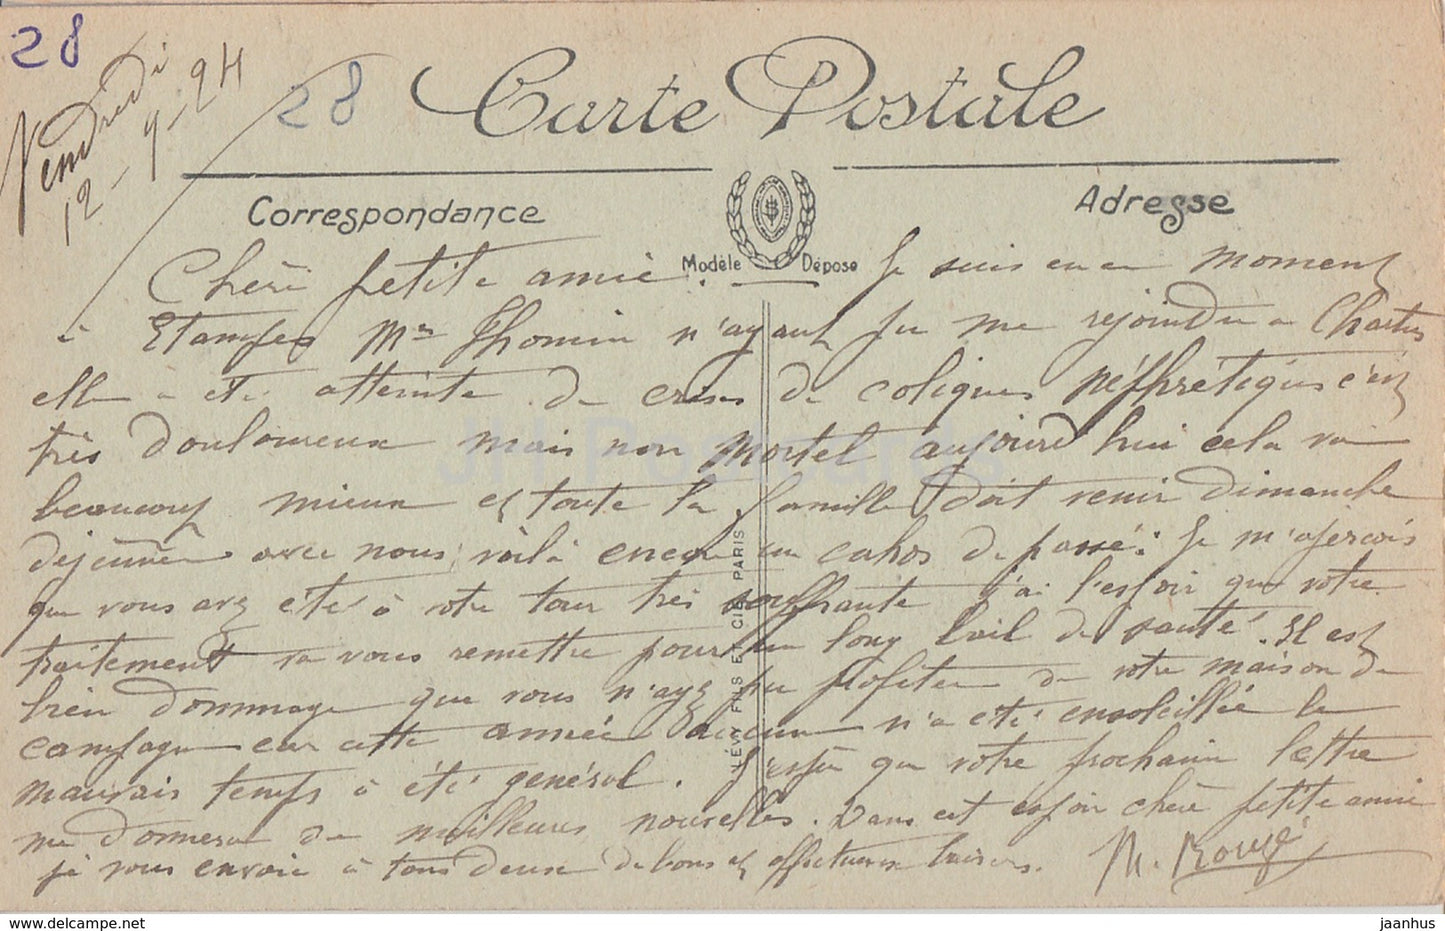 28
Vendredi
12-9-24
28
Carte Postale
Correspondance
Adresse
Modèle Déposé
Chère petite amie. Je suis en ce moment
à Etampes Me Thomin n'ayant pu me rejoindre a Chartres
elle a été atteinte de crises de coliques néffrétiques c'est
très douloureux mais non mortel aujourd'hui cela va
beaucoup mieux et toute la famille doit venir dimanche
déjeuner avec nous voilà encore un cahos de passé. Je m'aperçois
que vous avez été à votre tour très souffrante j'ai l'espoir que votre
traitement va vous remettre pour un long bail de santé. Il est
bien dommage que vous n'ayez pu profiter de votre maison de
campagne car cette année aucun n'a été ensoleillée le
mauvais temps à été général. J'espère que votre prochaine lettre
me donnera de meilleures nouvelles. Dans cet espoir chère petite amie
je vous envoie à tous deux de bons et affectueux baisers. M. Rougé
LÉVY FILS ET CIE PARIS
JH Postcards
hippostcard.com
jaanhus